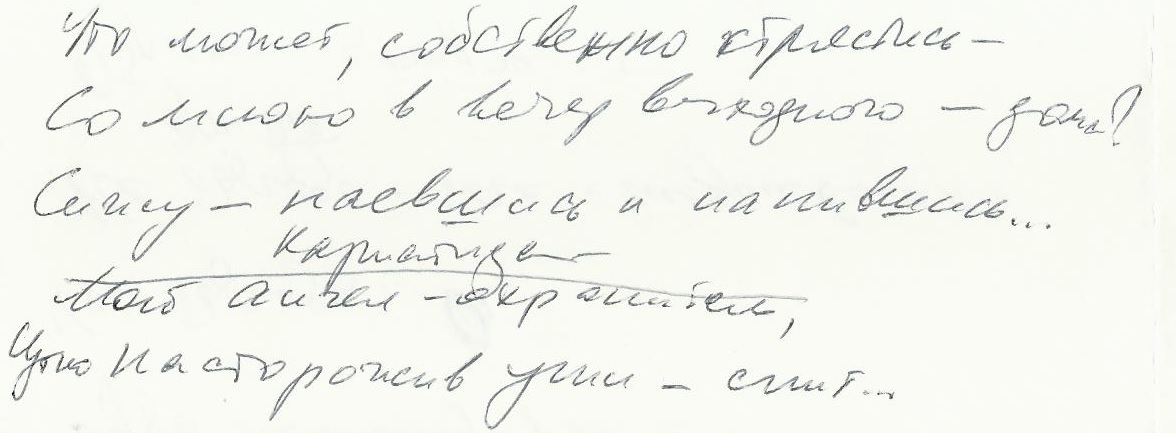 Что может, собственно стрястись –
Со мною в вечер выходного – дома?
Сижу – наевшись и напившись...
Мой Ангел-охранитель,
Чутко насторожив уши – спит...